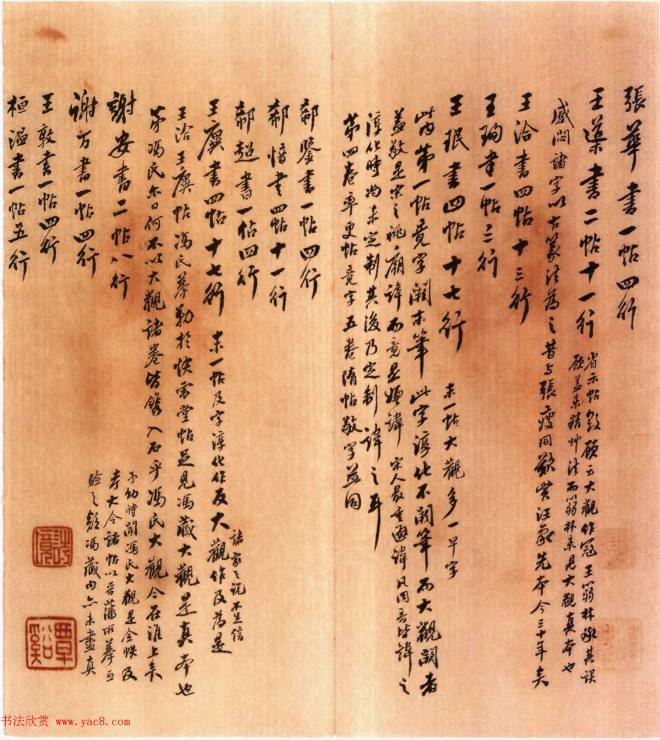 張華書一帖四行
王渠書二帖十一行
省示帖敬顧之大觀作寇王篛林承其誤
顧蓋某稿艸法而篛林未見大觀真本也
感悶諸字以古篆法為之昔与張瘦同歎賞汪氏先本今三十年矣
王洽書四帖十三行
王珣書一帖三行
王珉書四帖十七行
末一帖大觀多一早字
此內第一帖竟字闕末筆此字淳化不闕筆而大觀闕者
蓋敬是宋之祧廟諱而竟是嫌諱宋人最重避諱凡同音皆諱之
淳化時尚未定制其後乃定制諱之耳
第四卷率更帖竟字五卷隋帖敬字並同
郗鑒書一帖四行
郗愔書四帖十一行
郗超書一帖四行
王廙書四帖十七行
末一帖及字淳化作反大觀作及為是
諸家之說不足信
王洽王廙帖馮氏摹勒於快雪堂帖足見馮藏大觀是真本也
第馮氏尔日何不以大觀諸卷皆鐫入石乎馮氏大觀今在淮上矣
予幼時聞馮氏大觀是全帙及
考大令諸帖以晉藩所摹
驗之馮藏內亦未盡真
謝安書二帖八行
謝万書一帖四行
王敦書一帖四行
桓溫書一帖五行
覃谿
书法欣赏 www.yac8.com